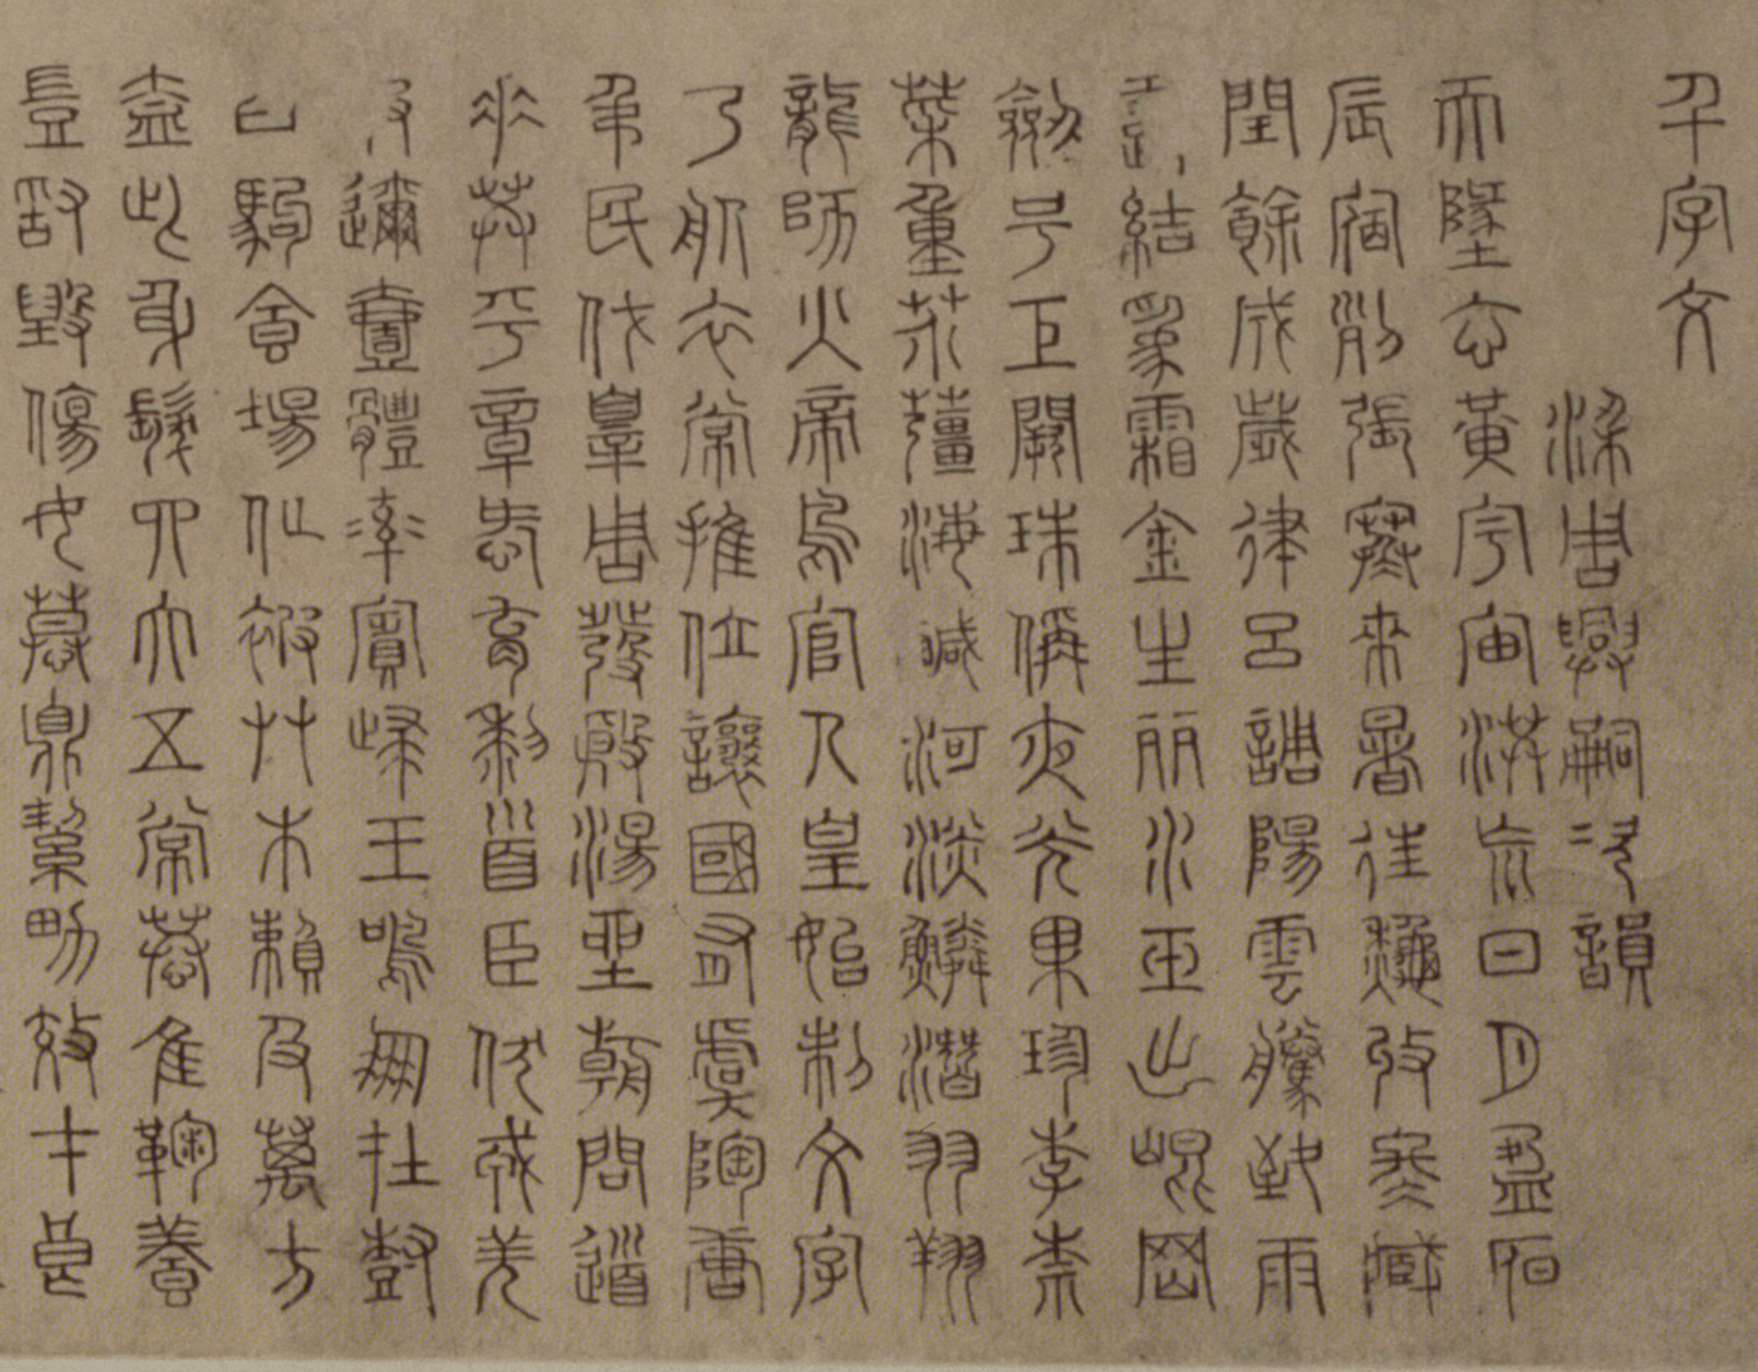 千字文
梁周興嗣次韻
天地玄黃宇宙洪荒日月盈昃
辰宿列張寒來暑往秋收冬藏
閏餘成歲律呂調陽雲騰致雨
露結為霜金生麗水玉出崑岡
劍號巨闕珠稱夜光果珍李柰
菜重芥薑海鹹河淡鱗潛羽翔
龍師火帝鳥官人皇始制文字
乃服衣裳推位讓國有虞陶唐
弔民伐罪周發殷湯坐朝問道
垂拱平章愛育黎首臣伏戎羌
遐邇壹體率賓歸王鳴鳳在樹
白駒食場化被草木賴及萬方
蓋此身髮四大五常恭惟鞠養
豈敢毀傷女慕貞絜男效才良